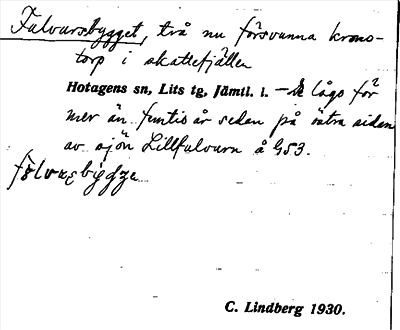 Fulvursbygget, två nu försvunna krono-
torp i skattefjällen
Hotagens sn, Lits tg, Jämtl. l. — lågo för
mer än funtio år sedan på östra sidan
av sjön Lillfulvurn å G53.

C. Lindberg 1930.